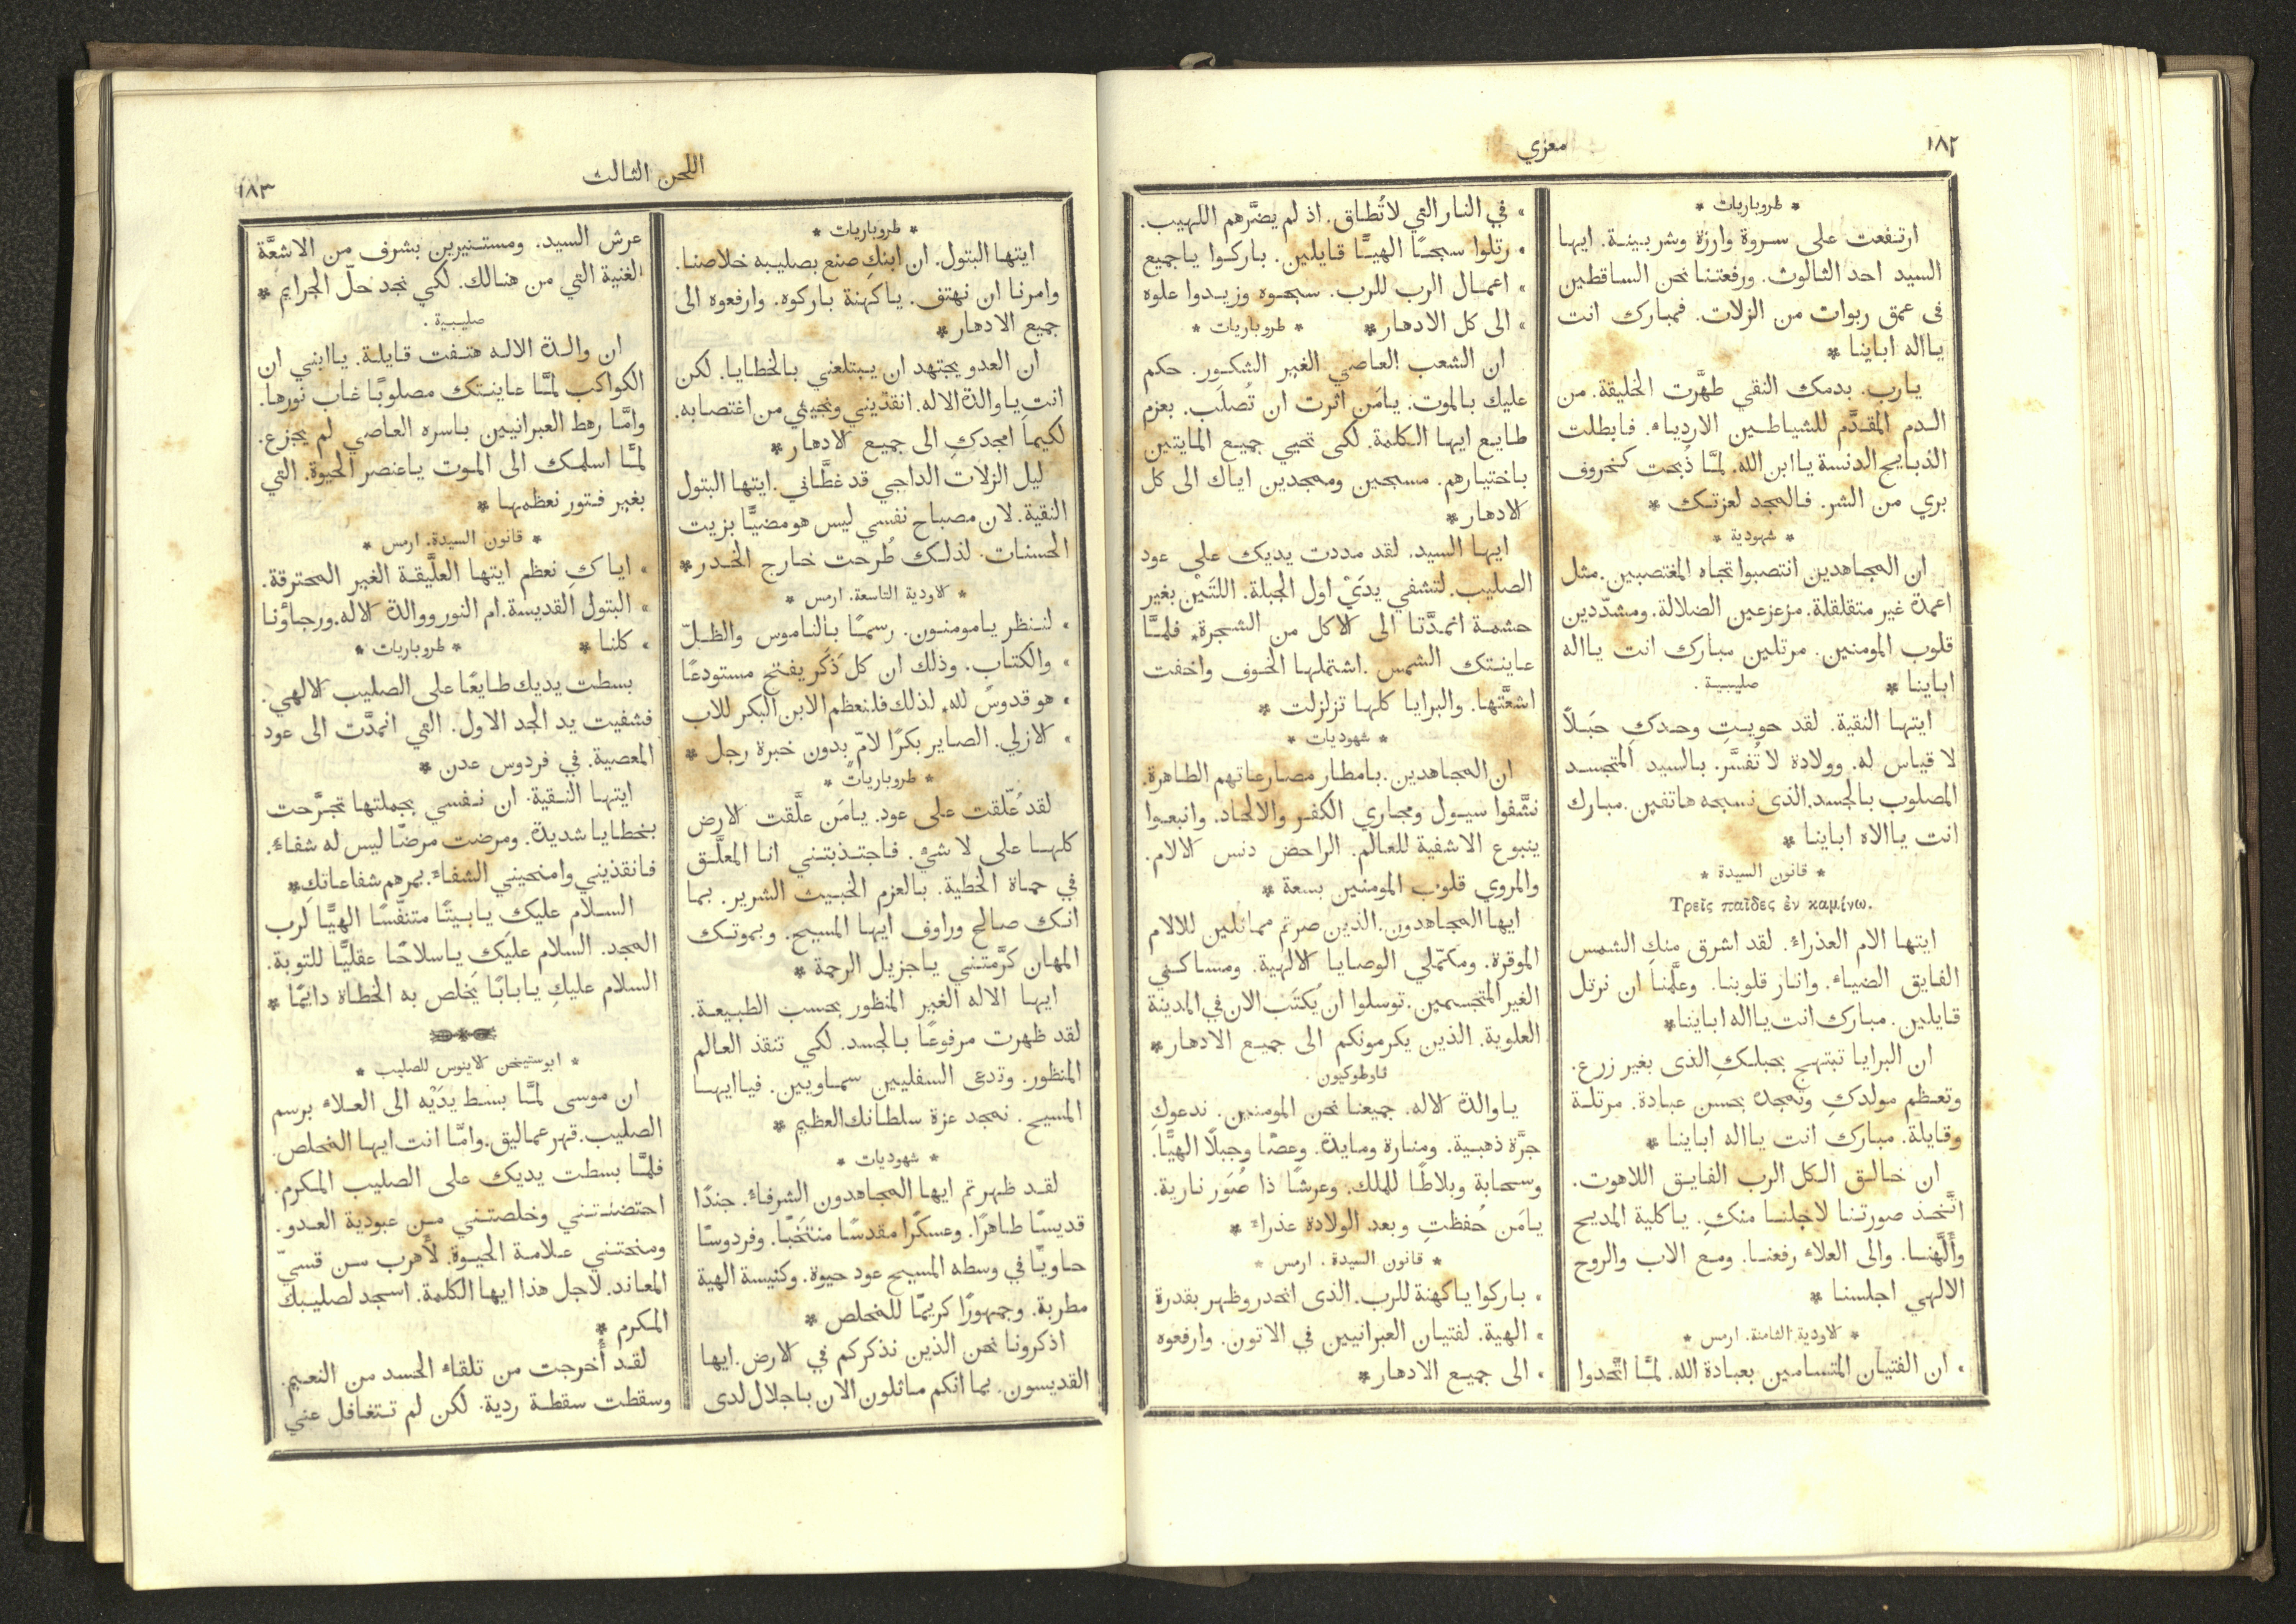 ١٨٢
معزي
* طروباريات *
ارتفعت على سروة وارزة وشربينة. ايها
السيد احد الثالوث. ورفعتنا نحن الساقطين
فى عمق ربوات من الزلات. فمبارك انت
يااله اباينا *
يارب. بدمك النقي طهَّرت الخليقة. من
الدم المقدَّم للشياطين الاردياء. فابطلت
الذبايح الدنسة ياابن الله. لمَّا ذُبحت كخروف
بري من الشر. فالمجد لعزتك *
* شهودية *
ان المجاهدين انتصبوا تجاه المغتصبين. مثل
اعمدة غير متقلقلة. مزعزعين الضلالة. ومشدّدين
قلوب المومنين. مرتلين مبارك انت يااله
اباينا * صليبية .
ايتها النقية. لقد حويتِ وحدكِ حبَلاً
لا قياس له. وولادة لا تُفسَّر. بالسيد المتجسد
المصلوب بالجسد. الذى نسبحه هاتفين. مبارك
انت ياالاه اباينا *
* قانون السيدة *
Τρεῖς παῖδες ἐν καμίνω.
ايتها الام العذراء. لقد اشرق منكِ الشمس
الفايق الضياء. وانار قلوبنا. وعلَّمنا ان نرتل
قايلين. مبارك انت يااله اباينا *
ان البرايا تبتهج بحبلكِ الذى بغير زرع.
وتعظم مولدكِ وتمجده بحسن عبادة. مرتلة
وقايلة. مبارك انت يااله اباينا *
ان خالق الكل الرب الفايق اللاهوت.
اتَّخذ صورتنا لاجلنا منكِ. ياكلية المديح
وألَّهنا. والى العلاء رفعنا. ومع الاب والروح
الالهي اجلسنا *
* الاودية الثامنة. ارمس *
، ان الفتيان المتسامين بعبادة الله. لمَّا اتَّحدوا
، في النار التي لاتُطاق. اذ لم يضرَّهم اللهيب.
، رتلوا سبحًا الهيًّا قايلين. باركوا ياجميع
، اعمال الرب للرب. سبحوه وزيدوا علوه
، الى كل الادهار * * طروباريات *
ان الشعب العاصي الغير الشكور. حكم
عليك بالموت. يامَن اثرت ان تُصلَب. بعزم
طايع ايها الكلمة. لكى تحيي جميع المايتين
باختيارهم. مسبحين وممجدين اياك الى كل
الادهار *
ايها السيد. لقد مددت يديك على عود
الصليب. لتشفي يدَيْ اول الجبلة. اللتَيْن بغير
حشمة انمدَّتا الى الاكل من الشجرة. فلمَّا
عاينتك الشمس. اشتملها الخوف واخفت
اشعَّتها. والبرايا كلها تزلزلت *
* شهوديات *
ان المجاهدين. بامطار مصارعاتهم الطاهرة.
نشَّفوا سيول ومجاري الكفر والالحاد. وانبعوا
ينبوع الاشفية للعالم. الراحض دنس الالام.
والمروي قلوب المومنين بسعة *
ايها المجاهدون. الذين صرتم مماثلين للالام
الموقرة. ومكمّلي الوصايا الالهية. ومساكني
الغير المتجسمين. توسلوا ان يُكتَب الان في المدينة
العلوية. الذين يكرمونكم الى جميع الادهار *
ثاوطوكيون .
ياوالدة الاله. جميعنا نحن المومنين. ندعوكِ
جرَّة ذهبية. ومنارة ومايدة. وعصًا وجبلًا الهيًّا.
وسحابة وبلاطًا للملك. وعرشًا ذا صُوَر نارية.
يامَن حُفظتِ وبعد الولادة عذراء *
* قانون السيدة . ارمس *
، باركوا ياكهنة للرب. الذى انحدر وظهر بقدرة
، الهية. لفتيان العبرانيين في الاتون. وارفعوه
، الى جميع الادهار *
اللحن الثالث
١٨٣
* طروباريات *
ايتها البتول. ان ابنكِ صنع بصليبه خلاصنا.
وامرنا ان نهتف. ياكهنة باركوه. وارفعوه الى
جميع الادهار *
ان العدو يجتهد ان يبتلعني بالخطايا. لكن
انتِ ياوالدة الاله. انقذيني ونجيني من اغتصابه.
لكيما امجدكِ الى جميع الادهار *
ليل الزلات الداجي قد غطَّاني. ايتها البتول
النقية. لان مصباح نفسي ليس هو مضيًّا بزيت
الحسنات. لذلك طُرحت خارج الخدر *
* الاودية التاسعة. ارمس *
، لننظر يامومنون. رسمًا بالناموس والظلّ
، والكتاب. وذلك ان كل ذَكَر يفتح مستودعًا
، هو قدوسٌ لله. لذلك فلنعظم الابن البكر للاب
، الازلي. الصاير بكرًا لامّ بدون خبرة رجل *
* طروباريات *
لقد عُلّقت على عود. يامَن علَّقت الارض
كلها على لا شيْ. فاجتذبتني انا المعلَّق
في حماة الخطية. بالعزم الخبيث الشرير. بما
انك صالح وراوف ايها المسيح. وبموتك
المهان كرَّمتني ياجزيل الرحمة *
ايها الاله الغير المنظور بحسب الطبيعة.
لقد ظهرت مرفوعًا بالجسد. لكي تنقذ العالم
المنظور. وتدعى السفليين سماويين. فياايها
المسيح. نمجد عزة سلطانك العظيم *
* شهوديات *
لقد ظهرتم ايها المجاهدون الشرفاء. جندًا
قديسًا طاهرًا. وعسكرًا مقدسًا منتَخبًا. وفردوسًا
حاويًا في وسطه المسيح عود حيوة. وكنيسة الهية
مطربة. وجمهورًا كريمًا للمخلص *
اذكرونا نحن الذين نذكركم في الارض. ايها
القديسون. بما انكم ماثلون الان باجلال لدى
عرش السيد. ومستنيرين بشرف من الاشعَّة
الغنية التي من هنالك. لكي نجد حلّ الجرايم *
صليبية .
ان والدة الاله هتفت قايلة. ياابني ان
الكواكب لمَّا عاينتك مصلوبًا غاب نورها.
وامَّا رهط العبرانيين باسره العاصي لم يجزع.
لمَّا اسلمك الى الموت ياعنصر الحيوة. التي
بغير فتور نعظمها *
* قانون السيدة. ارمس *
، اياكِ نعظم ايتها العلَّيقة الغير المحترقة.
، البتول القديسة. ام النور ووالدة الاله. ورجاؤنا
، كلنا * * طروباريات *
بسطت يديك طايعًا على الصليب الالهي.
فشفيت يد الجد الاول. التي انمدَّت الى عود
المعصية. في فردوس عدن *
ايتها النقية. ان نفسي بجملتها تجرَّحت
بخطايا شديدة. ومرضت مرضًا ليس له شفاء.
فانقذيني وامنحيني الشفاء. بمرهم شفاعاتكِ *
السلام عليكِ يابيتًا متنفّسًا الهيًّا لرب
المجد. السلام عليكِ ياسلاحًا عقليًّا للتوبة.
السلام عليكِ يابابًا يَخلص به الخطاة دايمًا *
* ابوستيخن الاينوس للصليب *
ان موسى لمَّا بسط يدَيْه الى العلاء برسم
الصليب. قهر عماليق. وامَّا انت ايها المخلص.
فلمَّا بسطت يديك على الصليب المكرم.
احتضنتني وخلصتني من عبودية العدو.
ومنحتني علامة الحيوة. لأهرب من قسيّ
المعاند. لاجل هذا ايها الكلمة. اسجد لصليبك
المكرم *
لقد أُخرجت من تلقاء الحسد من النعيم.
وسقطت سقطة ردية. لكن لم تتغافل عني